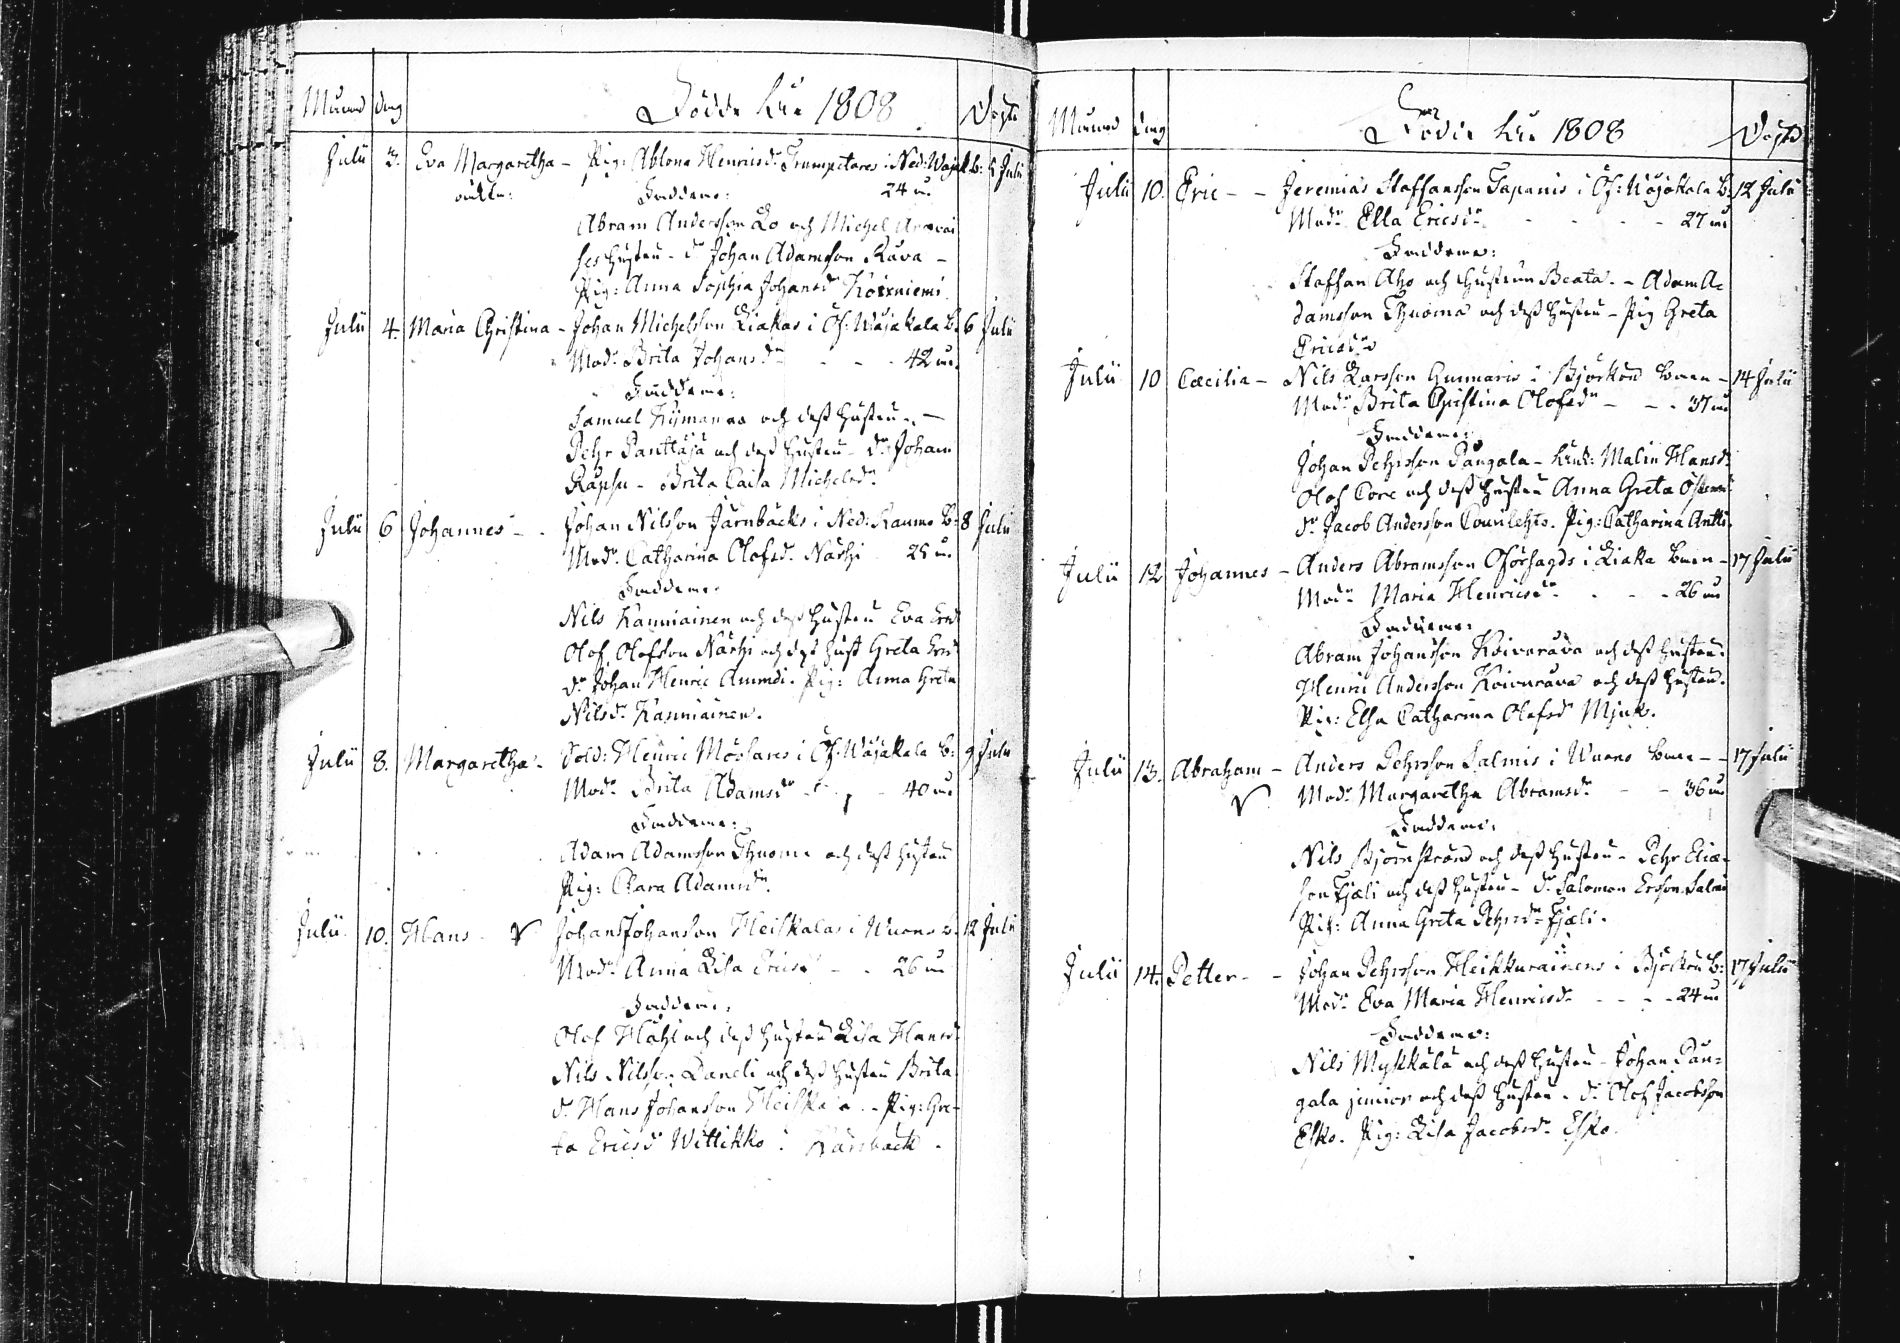 Månad dag Födde åhr 1808 Döpte
Julii 3. Eva Margaretha - Pig: Ablona Henricsdr Trumpetares i Ned: Wojak. b: 5 Julii
oäkta: Faddrene: 24 år
Abram Andersson Lo och Michel
ses hustru - dr Johan Adamsson Rava -
Pig: Anna Sophia Johansdr Koixniemi.
Julii 4. Maria Christina - Johan Michelsson Liakas i Öf: Wäjakala B. 6 Julii
Modr Brita Johansdr - - - 42 år.
Faddrene:
Samuel Kymanas och dess hustru. -
Pehr Panttäjä och dess hustru - dr Johan
Räpsu - Brita Caisa Michelsdr
Julii 6 Johannes - . Johan Nilsson Järnbäcks i Ned: Raumo B: 8 Julii
Modr Catharina Olofsdr Närhi 25 år.
Faddrene:
Nils Kanniainen och dess hustru Eva Ersdr
Olof Olofsson Närhi och dess hust Greta Ersdr
dr Johan Henric Ammdi. Pig: Anna Greta
Nilsdr Kanniainen.
Julii 8. Margaretha - Sold: Henric Möslares i Öf: Wäjakala B: 9 Julii
Modr Brita Adamsdr - - - 40 år
Faddrene:
Adam Adamsson Thuoma och dess hustru
Pig: Clara Adamsdr.
Julii 10. Hans - V Johan Johansson Heiskalas i Wuono B. 12 Julii
Modr Anna Lisa Ericsdr - - 26 år
Faddrene:
Olof Hähl och dess hustru Lisa Hansdr
Nils Nilsson Daneli och dess hustru Brita.
dr Hans Johansson Heiskala. - Pig: Gre-
ta Ericsdr Wittikko i Karsbäck.
Månad dag Födde åhr 1808 Döpte
Julii 10. Eric - - Jeremias Staffansson Tapanis i Öf: Wojakala B. 12 Julii
Modr Ella Ericsdr - - - - 27 år
Faddrene:
Staffan Aho och hustrun Beata. - Adam A-
damsson Thuoma och dess hustru - Pig Greta
Ericsdr
Julii 10 Cæcilia - Nils Larsson Gunnaris i Björkön Boen - 14 Julii
Modr Brita Christina Olofsdr - - - 37 år
Faddrene:
Johan Pehrsson Pangala - hust: Malin Hansdr
Olof Core och dess hustru Anna Greta
dr Jacob Andersson Courilehto. Pig: Catharina Antti.
Julii 12 Johannes - Anders Abramsson Oförsagds i Liaka Boen - 17 Julii
Modr Maria Henricsdr - - - 26 år
Faddrene:
Abram Johansson Koivurava och dess hustru.
Henric Andersson Koivurava och dess hustru.
Pig: Elsa Catharina Olofsdr Mjuk.
Julii 13. Abraham - Anders Pehrsson Salmis i Wuono Boen - - 17 Julii
V Modr Margaretha Abramsdr - - 36 år
Faddrene:
Nils Björnstrand och dess hustru - Pehr Elias-
son Fjäli och dess hustru - dr Salomon Ersson Salmi
Pig: Anna Greta Pehrsdr Fjæli.
Julii 14. Petter - - Johan Pehrsson Heikkurainens i Björkön B: 17 Julii
Modr Eva Maria Henricsdr - - - - 24 år
Faddrene:
Nils Mykkälä och dess hustru - Johan Pan-
gala junior och dess hustru - dr Olof Jacobsson
Esko. Pig: Lisa Jacobsdr Esko.